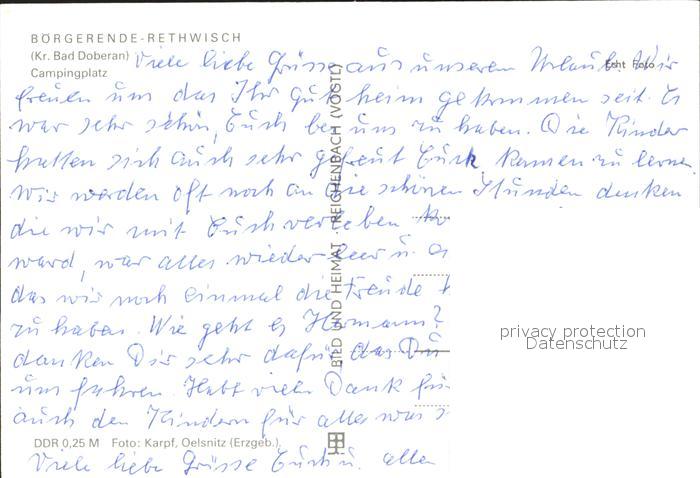 BÖRGERENDE-RETHWISCH
(Kr. Bad Doberan)
Campingplatz
Echt Foto
Viele liebe Grüsse aus unserem Urlaub. Wir
freuen uns das Ihr gut heim gekommen seit. Es
war sehr schön, Euch bei uns zu haben. Die Kinder
hatten sich auch sehr gefreut Euch kennen zu lernen.
Wir werden oft noch an die schönen Stunden denken
die wir mit Euch verleben
ward, war alles wieder leer u.
das wir noch einmal die Freude
zu haben. Wie geht es Hermann?
danken Dir sehr dafür das Du
uns fuhren. Habt vielen Dank für
auch den Kindern für alles was
DDR 0,25 M Foto: Karpf, Oelsnitz (Erzgeb.)
Viele liebe Grüsse Euch u. allen
BILD UND HEIMAT REICHENBACH (VOGTL)
privacy protection
Datenschutz